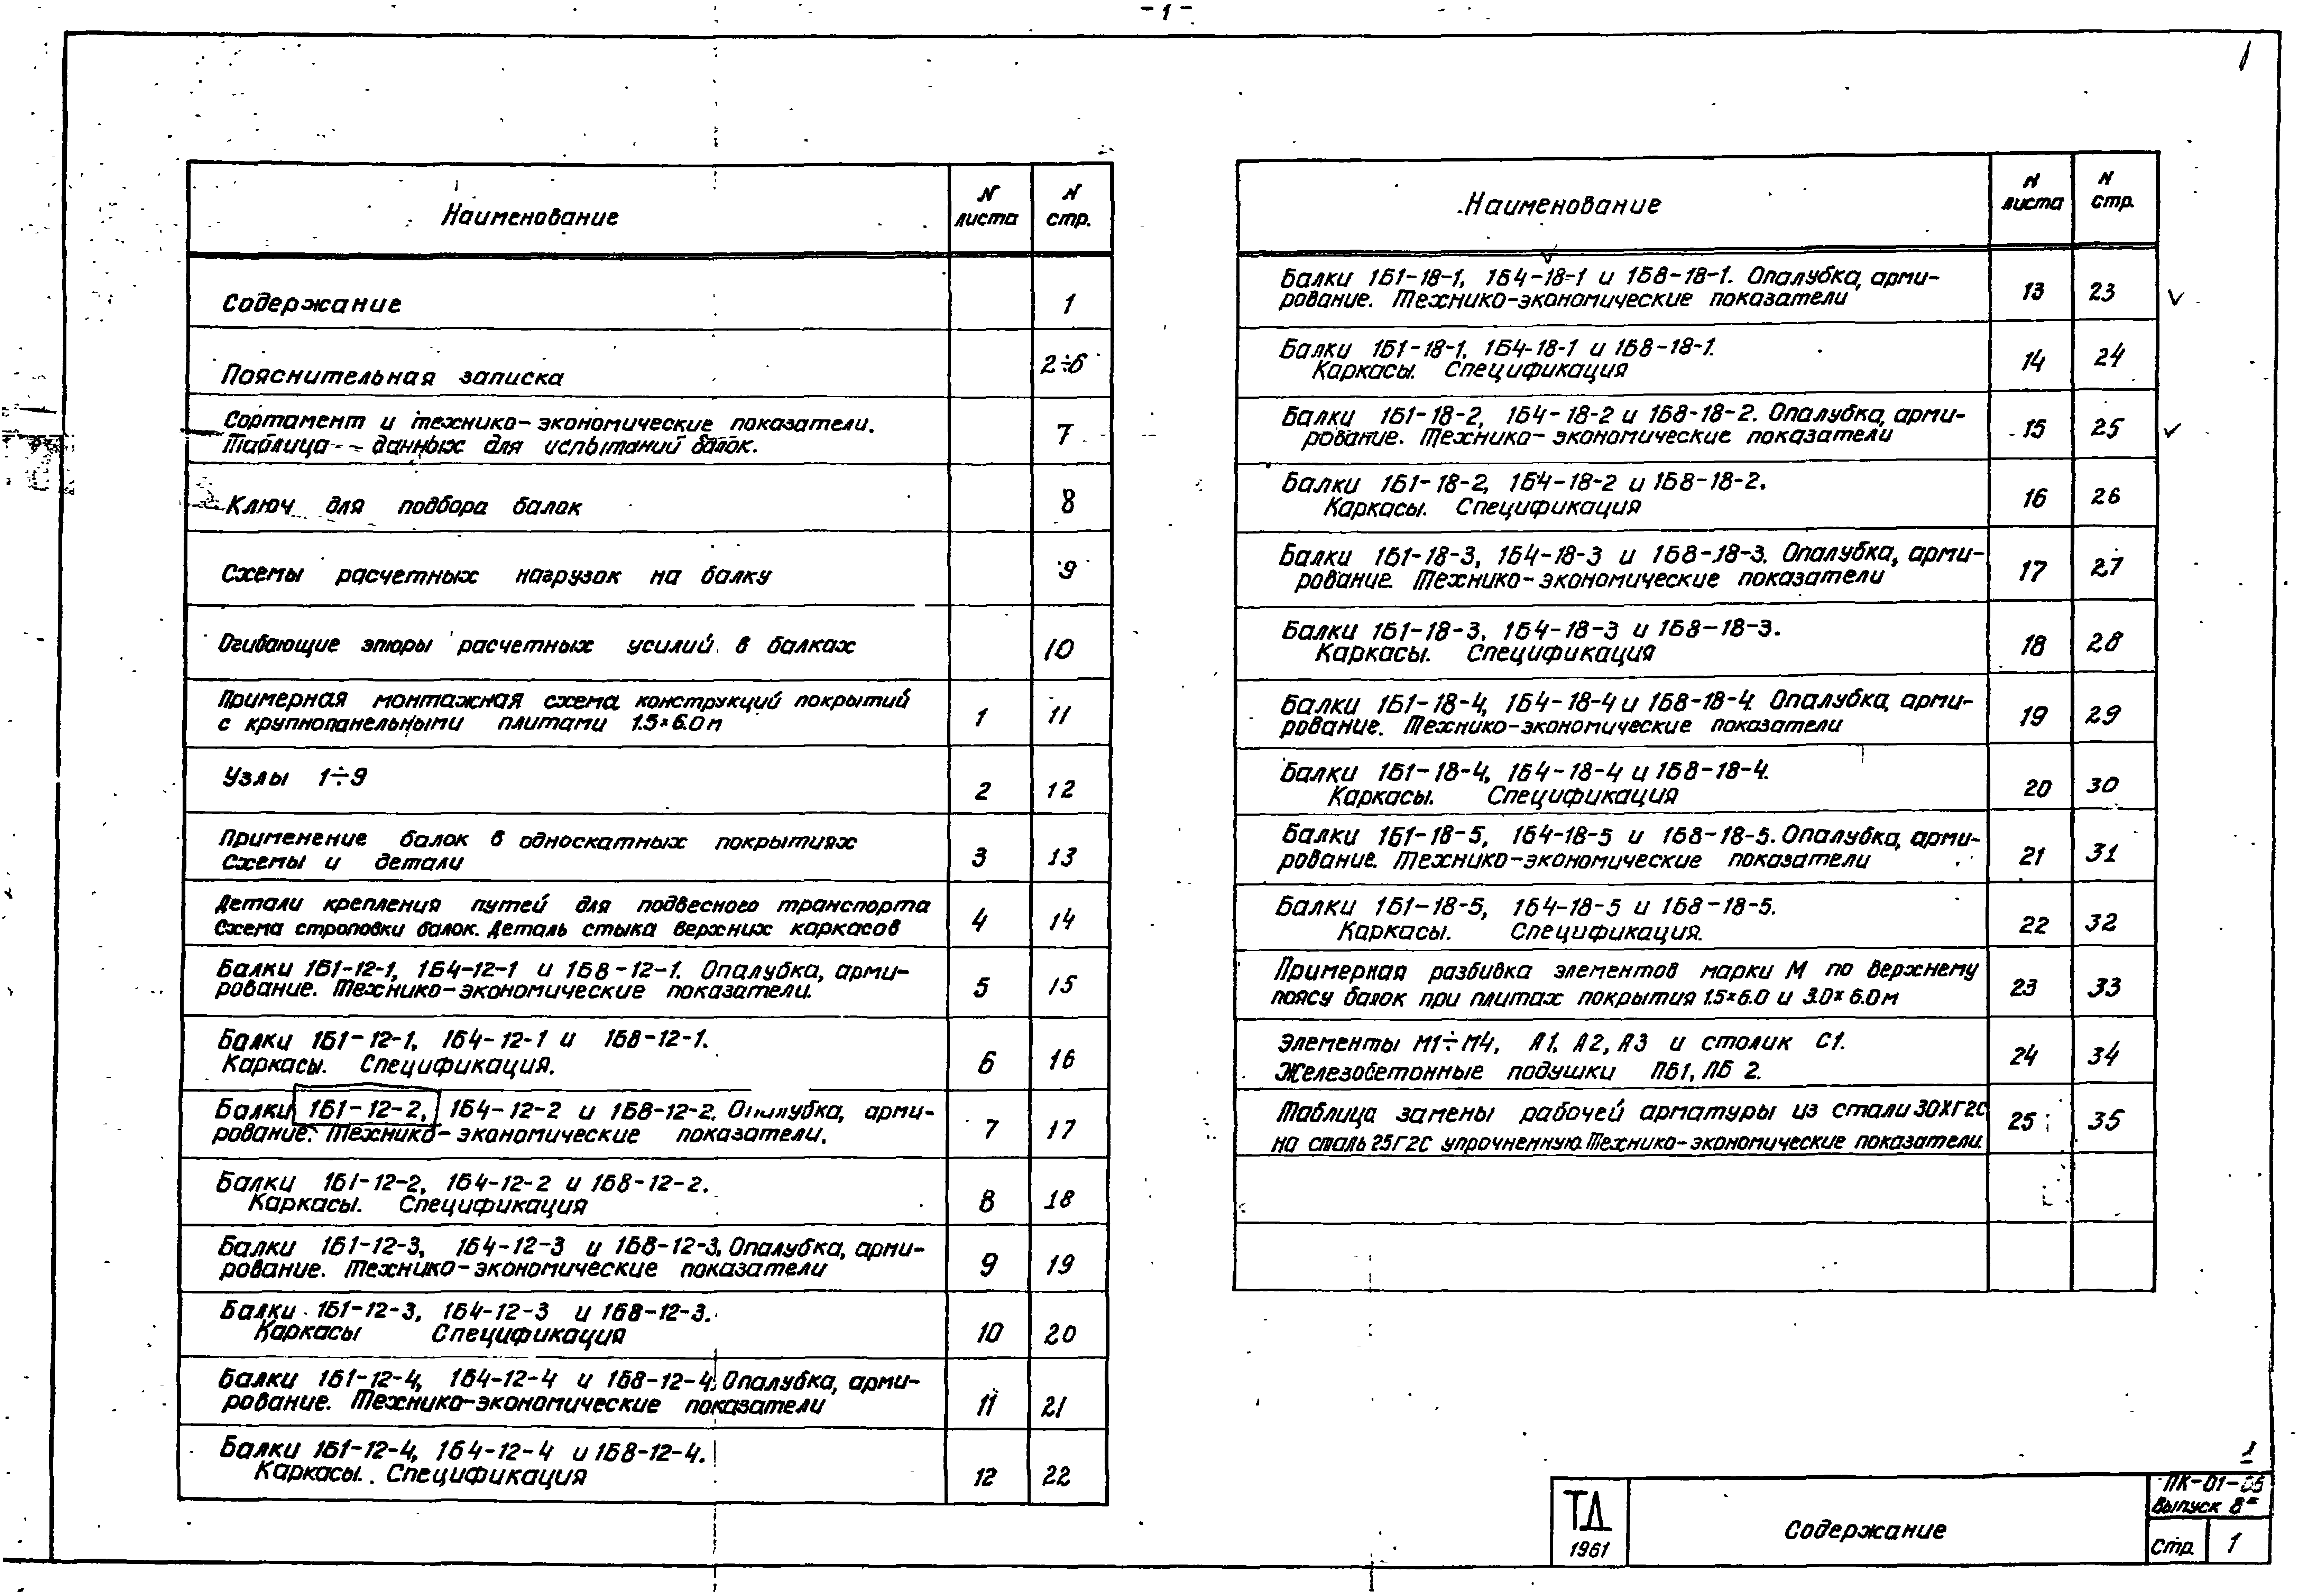 - 1 -
1
Наименование
N листа
N стр.
Содержание 1
Пояснительная записка 2÷6
Сортамент и технико-экономические показатели.
Таблица данных для испытаний балок. 7
Ключ для подбора балок 8
Схемы расчетных нагрузок на балку 9
Огибающие эпюры расчетных усилий в балках 10
Примерная монтажная схема конструкций покрытий
с крупнопанельными плитами 1.5×6.0м 1 11
Узлы 1÷9 2 12
Применение балок в односкатных покрытиях
Схемы и детали 3 13
Детали крепления путей для подвесного транспорта
Схема строповки балок. Деталь стыка верхних каркасов 4 14
Балки 1Б1-12-1, 1Б4-12-1 и 1Б8-12-1. Опалубка, арми-
рование. Технико-экономические показатели. 5 15
Балки 1Б1-12-1, 1Б4-12-1 и 1Б8-12-1.
Каркасы. Спецификация. 6 16
Балки 1Б1-12-2, 1Б4-12-2 и 1Б8-12-2. Опалубка, арми-
рование. Технико-экономические показатели. 7 17
Балки 1Б1-12-2, 1Б4-12-2 и 1Б8-12-2.
Каркасы. Спецификация 8 18
Балки 1Б1-12-3, 1Б4-12-3 и 1Б8-12-3. Опалубка, арми-
рование. Технико-экономические показатели 9 19
Балки 1Б1-12-3, 1Б4-12-3 и 1Б8-12-3.
Каркасы Спецификация 10 20
Балки 1Б1-12-4, 1Б4-12-4 и 1Б8-12-4. Опалубка, арми-
рование. Технико-экономические показатели 11 21
Балки 1Б1-12-4, 1Б4-12-4 и 1Б8-12-4.
Каркасы. Спецификация 12 22
Наименование
N листа
N стр.
Балки 1Б1-18-1, 1Б4-18-1 и 1Б8-18-1. Опалубка, арми-
рование. Технико-экономические показатели 13 23
Балки 1Б1-18-1, 1Б4-18-1 и 1Б8-18-1.
Каркасы. Спецификация 14 24
Балки 1Б1-18-2, 1Б4-18-2 и 1Б8-18-2. Опалубка, арми-
рование. Технико-экономические показатели 15 25
Балки 1Б1-18-2, 1Б4-18-2 и 1Б8-18-2.
Каркасы. Спецификация 16 26
Балки 1Б1-18-3, 1Б4-18-3 и 1Б8-18-3. Опалубка, арми-
рование. Технико-экономические показатели 17 27
Балки 1Б1-18-3, 1Б4-18-3 и 1Б8-18-3.
Каркасы. Спецификация 18 28
Балки 1Б1-18-4, 1Б4-18-4 и 1Б8-18-4. Опалубка, арми-
рование. Технико-экономические показатели 19 29
Балки 1Б1-18-4, 1Б4-18-4 и 1Б8-18-4.
Каркасы. Спецификация 20 30
Балки 1Б1-18-5, 1Б4-18-5 и 1Б8-18-5. Опалубка, арми-
рование. Технико-экономические показатели 21 31
Балки 1Б1-18-5, 1Б4-18-5 и 1Б8-18-5.
Каркасы. Спецификация. 22 32
Примерная разбивка элементов марки М по верхнему
поясу балок при плитах покрытия 1.5×6.0 и 3.0×6.0м 23 33
Элементы М1÷М4, А1, А2, А3 и столик С1.
Железобетонные подушки ПБ1, ПБ 2. 24 34
Таблица замены рабочей арматуры из стали 30ХГ2С
на сталь 25Г2С упрочненную. Технико-экономические показатели. 25 35
1
ТД
1961
Содержание
ПК-01-05
Выпуск 8*
Стр. 1